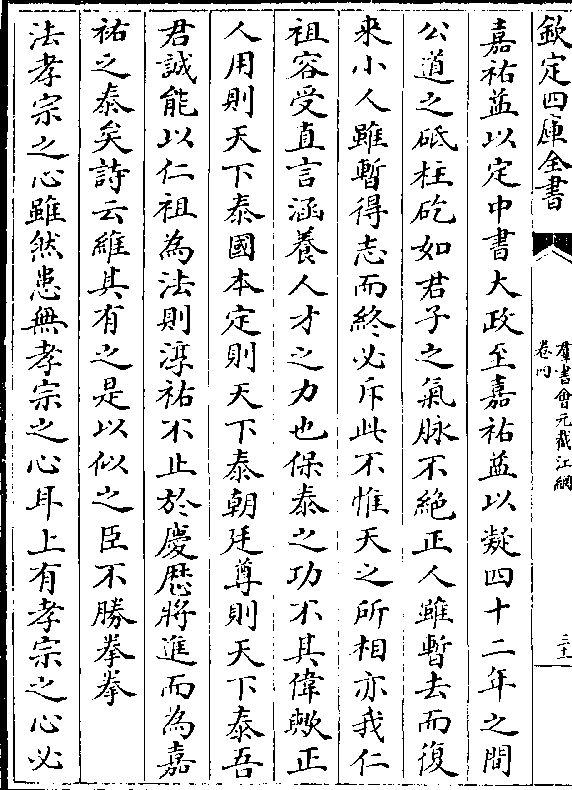 欽定四庫全書
羣書會元截江網
卷四
三十一
嘉祐益以定中書大政至嘉祐益以凝四十二年之間
公道之砥柱矻如君子之氣脉不絶正人雖暫去而復
来小人雖暫得志而終必斥此不惟天之所相亦我仁
祖容受直言涵養人才之力也保泰之功不其偉歟正
人用則天下泰國本定則天下泰朝廷尊則天下泰吾
君誠能以仁祖為法則淳祐不止於慶厯將進而為嘉
祐之泰矣詩云維其有之是以似之臣不勝拳拳
法孝宗之心雖然患無孝宗之心耳上有孝宗之心必